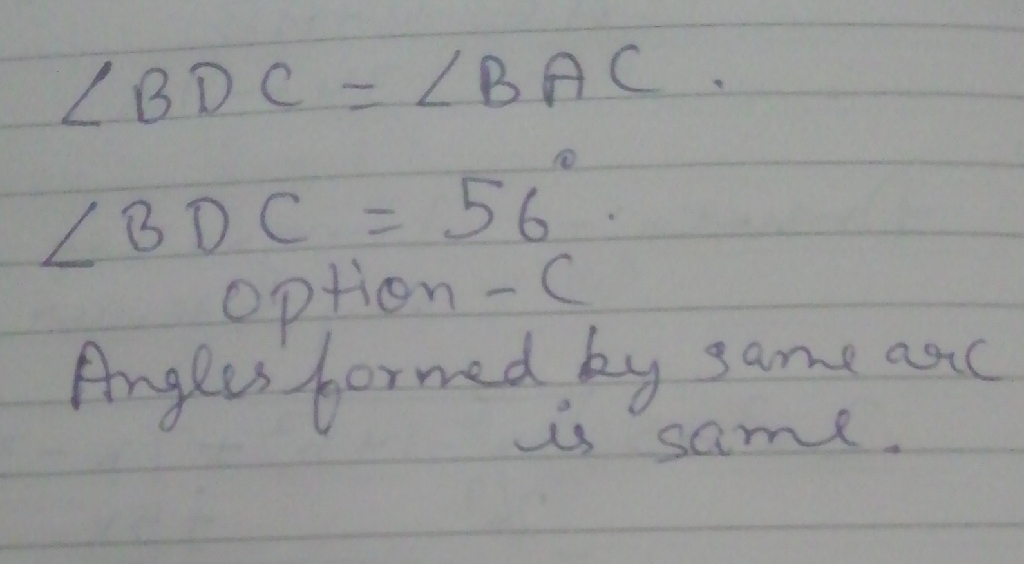 ∠BDC = ∠BAC.
∠BDC = 56°.
option - C
Angles formed by same arc
is same.